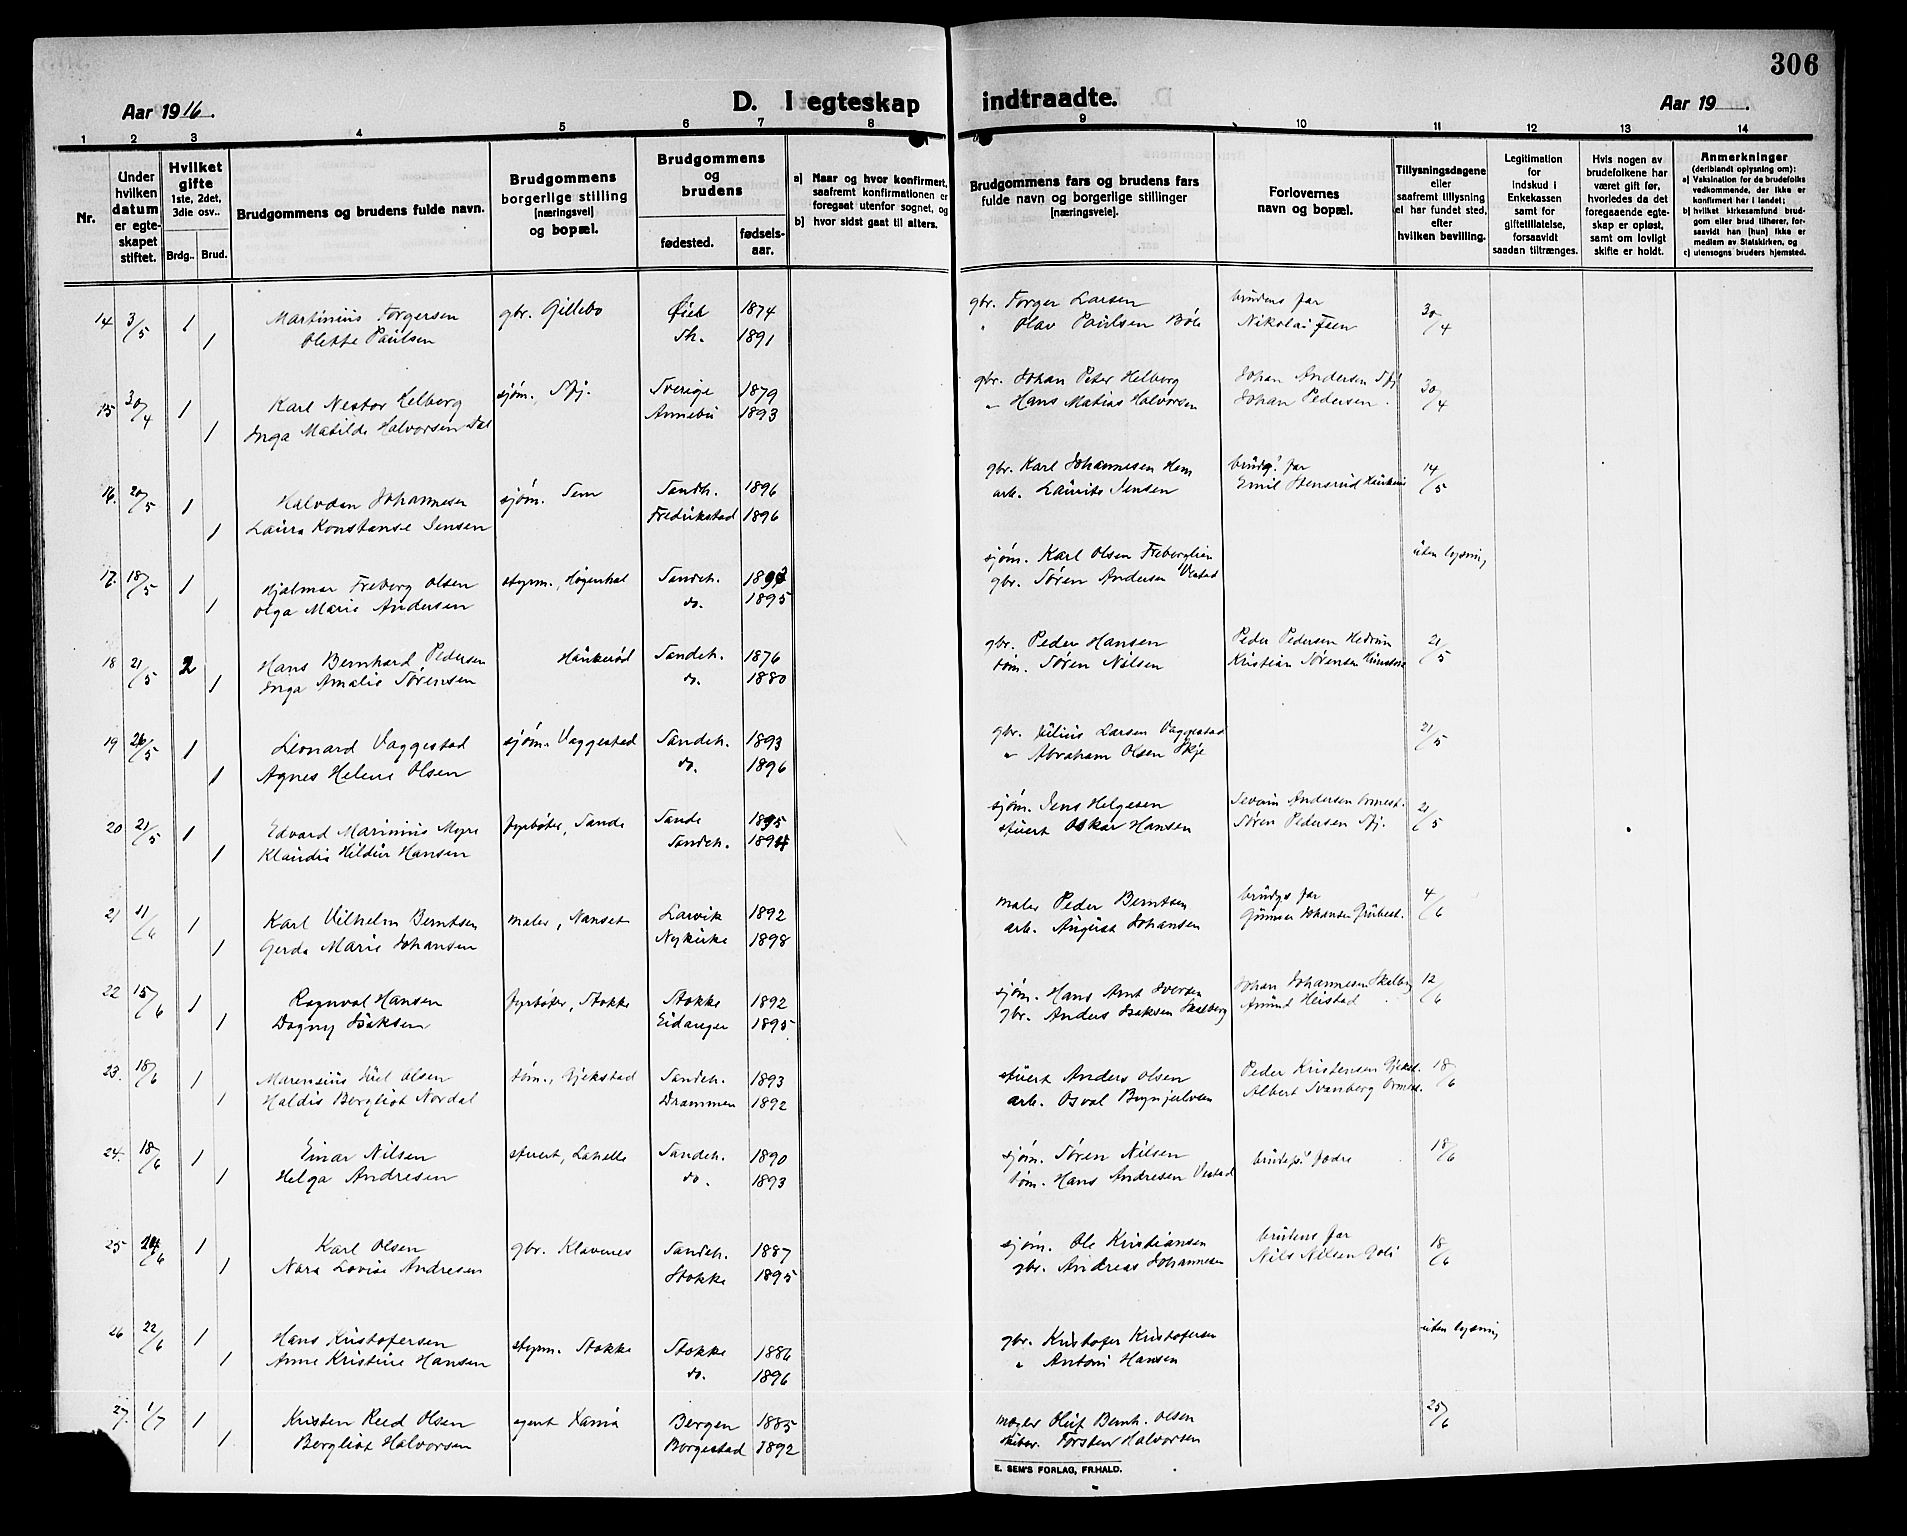 306
Aar 1916. D. I egteskap indtraadte. Aar 19 .
1 2 3 4 5 6 7 8 9 10 11 12 13 14
Nr.
Under hvilken datum er egteskapet stiftet.
Hvilket gifte 1ste, 2det, 3die osv..
Brdg.. Brud.
Brudgommens og brudens fulde navn.
Brudgommens borgerlige stilling [næringsvei] og bopæl.
Brudgommens og brudens
fødested. fødselsaar.
a) Naar og hvor konfirmert, saafremt konfirmationen er foregaat utenfor sognet, og
b) hvor sidst gaat til alters.
Brudgommens fars og brudens fars fulde navn og borgerlige stillinger [næringsveie].
Forlovernes navn og bopæl.
Tillysningsdagene eller saafremt tillysning ei har fundet sted, efter hvilken bevilling.
Legitimation for indskud i Enkekassen samt for giftetillatelse, forsaavidt saadan tiltrænges.
Hvis nogen av brudefolkene har været gift før, hvorledes da det foregaaende egteskap er opløst, samt om lovligt skifte er holdt.
Anmerkninger (deriblandt oplysning om):
a) Vaksination for de brudefolks vedkommende, der ikke er konfirmert her i landet;
b) hvilket kirkesamfund brudgom eller brud tilhører, forsaavidt han [hun] ikke er medlem av Statskirken, og
c) utensogns bruders hjemsted.
14 3/5 1 Martinius Torgersen gbr. Gillebo Øieb 1874 gbr. Torger Larsen brudens far 30/4
1 Olette Paulsen Sh. 1891 " Olav Paulsen Bøle Nikolai Feen
15 30/4 1 Karl Nestor Helberg sjøm., Sfj. Sverige 1879 gbr. Johan Peter Helberg Johan Andersen Sfj. 30/4
1 Inga Matilde Halvorsen Dal Annebu 1893 " Hans Matias Halvorsen Johan Pedersen
16. 20/5 1 Halvdan Johannesen sjøm. Sem Sandeh. 1896 gbr. Karl Johannesen Hem brudg. far 14/5
1 Laura Konstanse Jensen Fredrikstad 1896 arb. Laurits Jensen Emil Stensrud
17. 18/5 1 Hjalmar Freberg Olsen styrm., Høgenhal Sandeh. 1893 sjøm. Karl Olsen Freberglien uten lysning
1 Olga Marie Andersen do. 1895 gbr. Søren Andersen Vestad
18 21/5 2 Hans Bernhard Pedersen Haukerød Sandeh. 1876 gbr. Peder Hansen Peder Pedersen Hedrum 21/5
1 Inga Amalie Sørensen do. 1880 tøm. Søren Nilsen Kristian Sørensen
19 26/5 1 Leonard Vaggestad sjøm. Vaggestad Sandeh. 1893 gbr. Julius Larsen Vaggestad 21/5
1 Agnes Helene Olsen do. 1896 " Abraham Olsen Skje
20 21/5 1 Edvard Marinius Myre fyrbøter, Sande Sande 1895 sjøm. Jens Helgesen Severin Andersen Ormest. 21/5
1 Klaudia Hildur Hansen Sandeh. 1894 stuert Oskar Hansen Søren Pedersen Sfj.
21 11/6 1 Karl Vilhelm Berntsen maler, Nanset Larvik 1892 maler Peder Berntsen brudgs far 4/6
1 Gerda Marie Johansen Nykirke 1898 arb. August Johansen Gunnar Johansen
22 15/6 1 Ragnval Hansen fyrbøter, Stokke Stokke 1892 sjøm. Hans Amt Iversen Johan Johannesen Skalberg 12/6
1 Dagny Isaksen Eidanger 1895 gbr. Anders Isaksen Skalberg Amund Heistad
23. 18/6 1 Marensius Juel Olsen tøm., Gjekstad Sandeh. 1893 stuert Anders Olsen Peder Kristensen Gjekst. 18/6
1 Haldis Bergliot Nordal Drammen 1892 arb. Osval Brynjulvsen Albert Svanberg Ormest.
24. 18/6 1 Einar Nilsen stuert, Lahelle Sandeh. 1890 sjøm. Søren Nilsen brudep. fædre 18/6
1 Helga Andresen do. 1893 tøm. Hans Andresen Vestad
25 24/6 1 Karl Olsen gbr. Klavenes Sandeh. 1887 sjøm. Ole Kristiansen brudens far 18/6
1 Nora Lovise Andresen Stokke 1895 gbr. Andreas Johannesen Nils Nilsen Goli
26 22/6 1 Hans Kristofersen styrm. Stokke Stokke 1886 gbr. Kristofer Kristofersen uten lysning
1 Anne Kristine Hansen do. 1896 " Anton Hansen
27. 1/7 1 Kristen Reed Olsen agent Bergen 1885 mægler Oluf Bernh. Olsen 25/6
1 Bergliot Halvorsen Borgestad 1892 skibsr. Torsten Halvorsen
E. SEM'S FORLAG, FR.HALD.